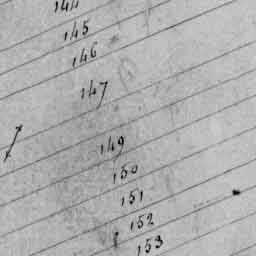 144
145
146
147
149
150
151
152
153